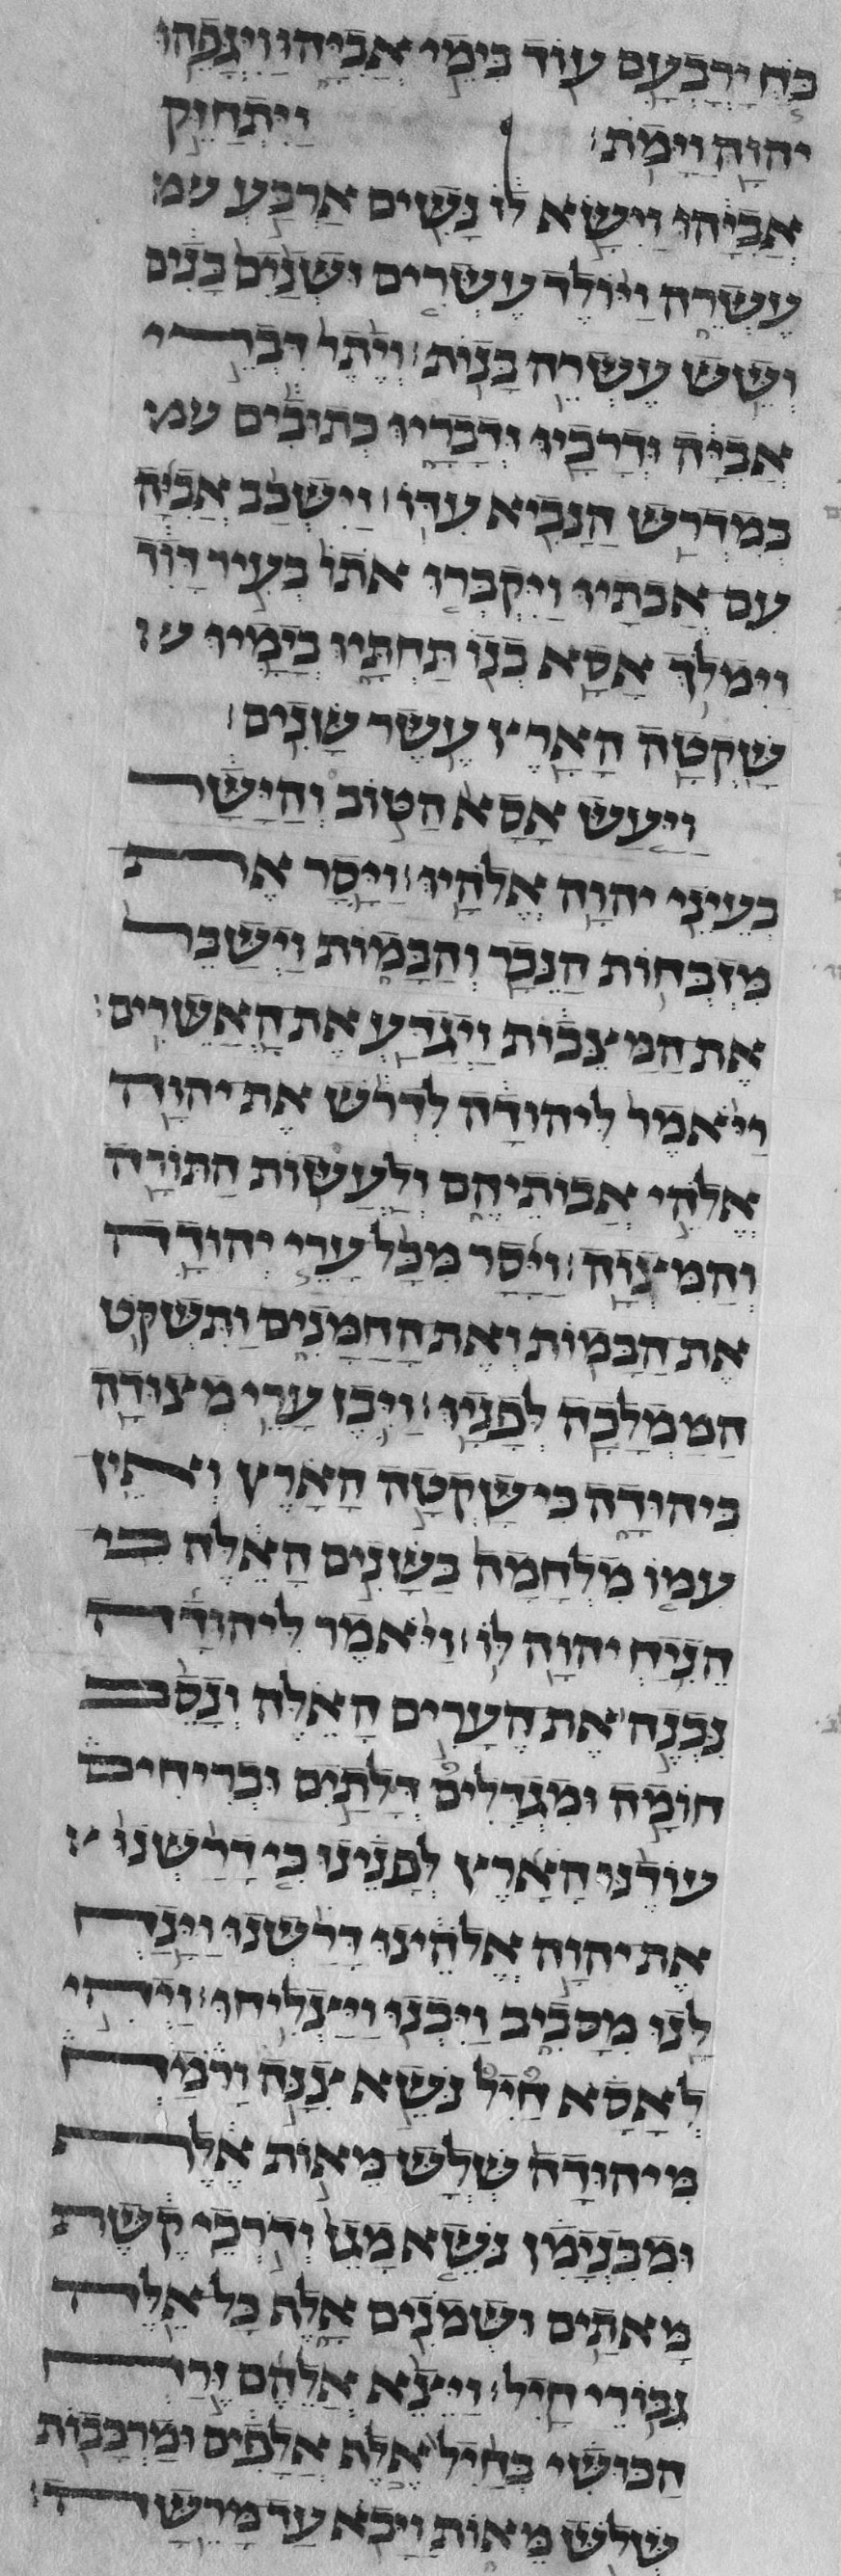 כח ירבעם עוד בימי אביהו ויגפהו
יהוה וימת: ויתחזק
אביהו וישא לו נשים ארבע
עשרה ויולד עשרים ושנים בנים
ושש עשרה בנות: ויתר דברי
אביה ודרכיו ודבריו כתובים
במדרש הנביא עדו: וישכב אביה
עם אבתיו ויקברו אתו בעיר דוד
וימלך אסא בנו תחתיו בימיו
שקטה הארץ עשר שנים:
ויעש אסא הטוב והישר
בעיני יהוה אלהיו: ויסר את
מזבחות הנכר והבמות וישבר
את המצבות ויגדע את האשרים:
ויאמר ליהודה לדרש את יהוה
אלהי אבותיהם ולעשות התורה
והמצוה: ויסר מכל ערי יהודה
את הבמות ואת החמנים ותשקט
הממלכה לפניו: ויבן ערי מצורה
ביהודה כי שקטה הארץ ואין
עמו מלחמה בשנים האלה כי
הניח יהוה לו: ויאמר ליהודה
נבנה את הערים האלה ונסב
חומה ומגדלים דלתים ובריחים
עודנו הארץ לפנינו כי דרשנו
את יהוה אלהינו דרשנו וינח
לנו מסביב ויבנו ויצליחו: ויהי
לאסא חיל נשא צנה ורמח
מיהודה שלש מאות אלף
ומבנימן נשא מגן ודרכי קשת
מאתים ושמנים אלף כל אלה
גבורי חיל: ויצא אלהם זרח
הכושי בחיל אלף אלפים ומרכבות
שלש מאות ויבא עד מרשה: